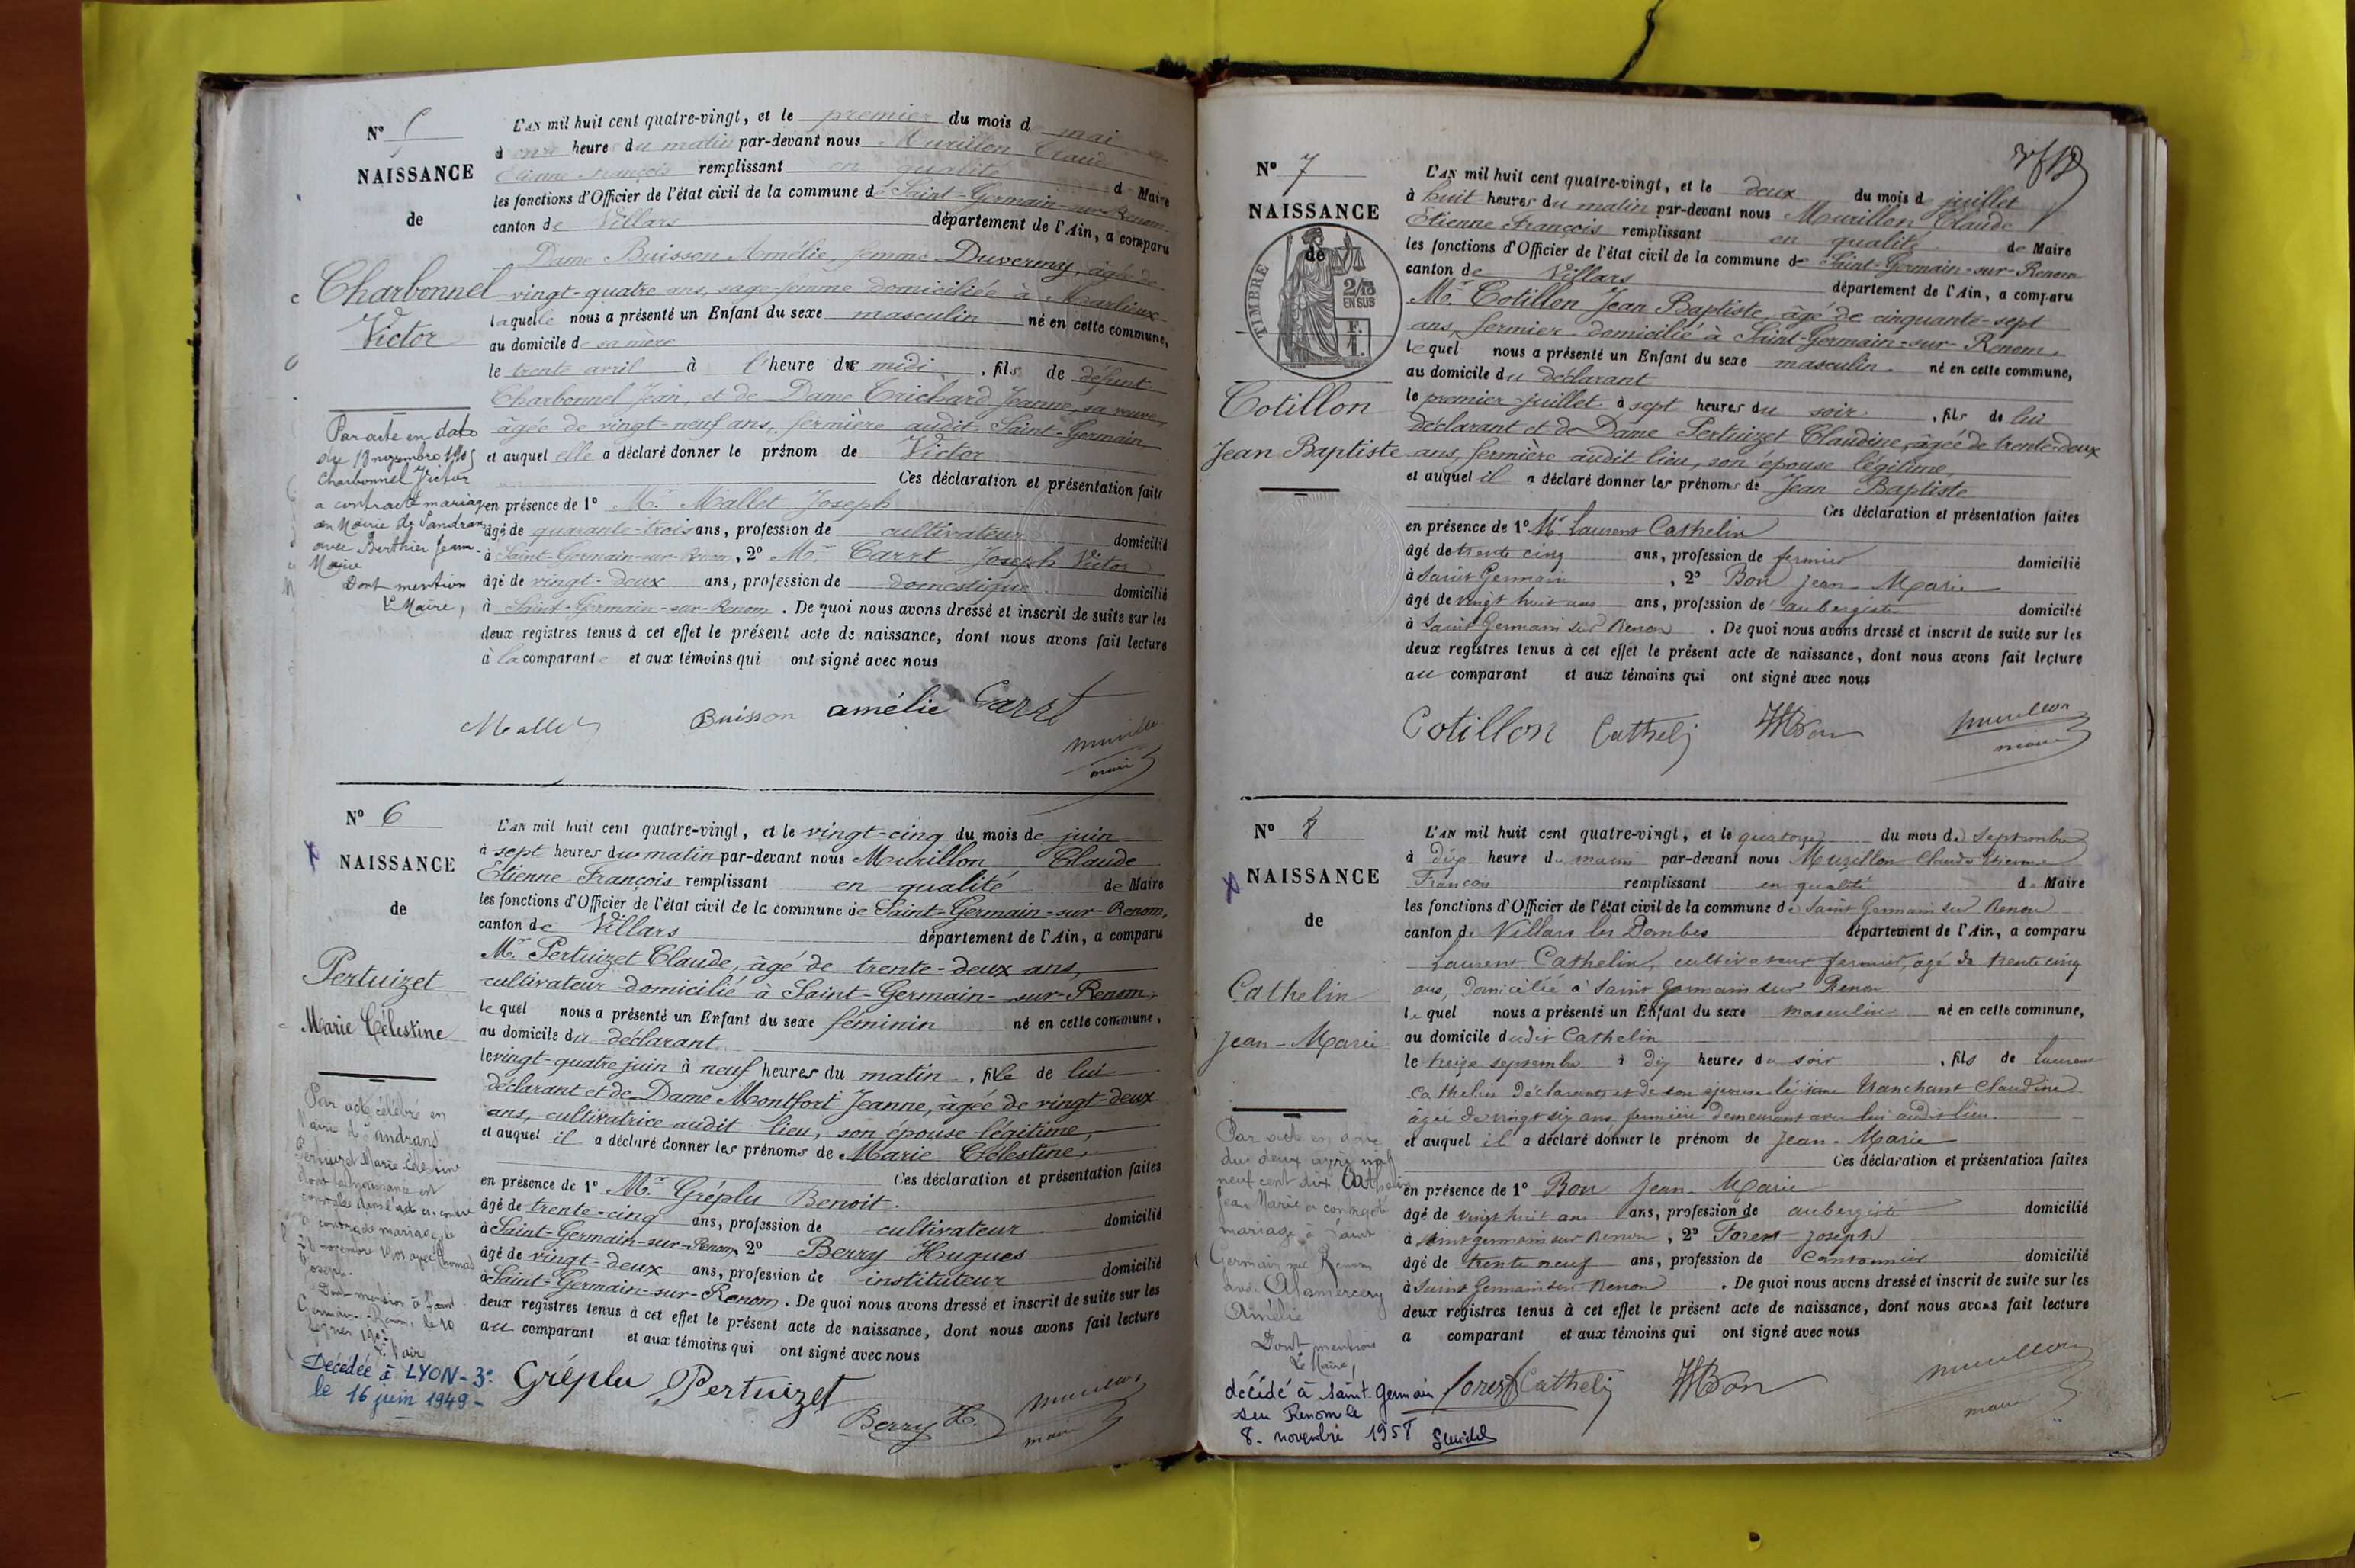 N° 5
NAISSANCE
de
Charbonnel
Victor
Par acte en date
du 18 novembre 1905
Charbonnel Victor
a contracté mariage
en Mairie de Sandrans
avec Berthier Jeanne
Marie
Dont mention
Le Maire,
L'AN mil huit cent quatre-vingt, et le premier du mois de mai
à onze heure du matin par-devant nous Murillon Claude
Etienne François remplissant en qualité de Maire
les fonctions d'Officier de l'état civil de la commune de Saint-Germain-sur-Renom
canton de Villars département de l'Ain, a comparu
Dame Buisson Amélie, femme Duvermy, âgée de
vingt-quatre ans, sage-femme domiciliée à Marlieux
laquelle nous a présenté un Enfant du sexe masculin né en cette commune,
au domicile de sa mère
le trente avril à l'heure de midi, fils de défunt
Charbonnel Jean, et de Dame Trichard Jeanne, sa veuve,
âgée de vingt-neuf ans, fermière audit Saint-Germain
et auquel elle a déclaré donner le prénom de Victor
Ces déclaration et présentation faites
en présence de 1° Mr Mallet Joseph
âgé de quarante-trois ans, profession de cultivateur domicilié
à Saint-Germain-sur-Renom, 2° Mr Carrt Joseph Victor
âgé de vingt-deux ans, profession de domestique domicilié
à Saint-Germain-sur-Renom. De quoi nous avons dressé et inscrit de suite sur les
deux registres tenus à cet effet le présent acte de naissance, dont nous avons fait lecture
à la comparante et aux témoins qui ont signé avec nous
Mallet Buisson amélie Carrt
Murillon
maire
N° 6
NAISSANCE
de
Pertuizet
Marie Célestine
Par acte célébré en
Mairie de Sandrans
Pertuizet Marie Célestine
dont la naissance est
constatée dans l'acte ci-contre
a contracté mariage le
novembre avec Thomas
Joseph.
Dont mention à Saint
Germain-Renom, le 10
Le Maire
Décédée à LYON-3e
le 16 juin 1949-
L'AN mil huit cent quatre-vingt, et le vingt-cinq du mois de juin
à sept heures du matin par-devant nous Murillon Claude
Etienne François remplissant en qualité de Maire
les fonctions d'Officier de l'état civil de la commune de Saint-Germain-sur-Renom,
canton de Villars département de l'Ain, a comparu
Mr Pertuizet Claude, âgé de trente-deux ans,
cultivateur domicilié à Saint-Germain-sur-Renom,
lequel nous a présenté un Enfant du sexe féminin né en cette commune,
au domicile du déclarant
le vingt-quatre juin à neuf heures du matin, fille de lui
déclarant et de Dame Montfort Jeanne, âgée de vingt-deux
ans, cultivatrice audit lieu, son épouse légitime,
et auquel il a déclaré donner les prénoms de Marie Célestine,
Ces déclaration et présentation faites
en présence de 1° Mr Gréplu Benoit
âgé de trente-cinq ans, profession de cultivateur domicilié
à Saint-Germain-sur-Renom, 2° Berry Hugues
âgé de vingt-deux ans, profession de instituteur domicilié
à Saint-Germain-sur-Renom. De quoi nous avons dressé et inscrit de suite sur les
deux registres tenus à cet effet le présent acte de naissance, dont nous avons fait lecture
au comparant et aux témoins qui ont signé avec nous
Gréplu Pertuizet
Berry H. Murillon
maire
N° 7
NAISSANCE
de
TIMBRE
2/10
EN SUS
F.
1.
Cotillon
Jean Baptiste
L'AN mil huit cent quatre-vingt, et le deux du mois de juillet
à huit heures du matin par-devant nous Murillon Claude
Etienne François remplissant en qualité de Maire
les fonctions d'Officier de l'état civil de la commune de Saint-Germain-sur-Renom
canton de Villars département de l'Ain, a comparu
Mr Cotillon Jean Baptiste, âgé de cinquante-sept
ans, fermier domicilié à Saint-Germain-sur-Renom,
lequel nous a présenté un Enfant du sexe masculin né en cette commune,
au domicile du déclarant
le premier juillet à sept heures du soir, fils de lui
déclarant et de Dame Pertuizet Claudine, âgée de trente-deux
ans, fermière audit lieu, son épouse légitime,
et auquel il a déclaré donner les prénoms de Jean Baptiste
Ces déclaration et présentation faites
en présence de 1° Mr Laurent Cathelin
âgé de trente cinq ans, profession de fermier domicilié
à Saint Germain, 2° Bon Jean-Marie
âgé de vingt huit ans ans, profession de aubergiste domicilié
à Saint Germain sur Renon. De quoi nous avons dressé et inscrit de suite sur les
deux registres tenus à cet effet le présent acte de naissance, dont nous avons fait lecture
au comparant et aux témoins qui ont signé avec nous
Cotillon Cathelin JMBon Murillon
maire
N° 8
NAISSANCE
de
Cathelin
Jean-Marie
Par acte en date
du deux avril mil
neuf cent dix Cathelin
Jean Marie a contracté
mariage à Saint
Germain sur Renom
avec Alamercery
Amélie
Dont mention
Le Maire,
décédé à Saint-Germain
sur Renom le
8. novembre 1958
L'AN mil huit cent quatre-vingt, et le quatorze du mois de Septembre
à dix heure du matin par-devant nous Murillon Claude Etienne
François remplissant en qualité de Maire
les fonctions d'Officier de l'état civil de la commune de Saint Germain sur Renon
canton de Villars les Dombes département de l'Ain, a comparu
Laurent Cathelin, cultivateur fermier, agé de trente cinq
ans, domicilié à Saint Germain sur Renon
lequel nous a présenté un Enfant du sexe masculin né en cette commune,
au domicile dudit Cathelin
le treize septembre à dix heures du soir, fils de Laurent
Cathelin déclarant et de son épouse légitime Manchant Claudine
âgée de vingt six ans fermière demeurant avec lui audit lieu.
et auquel il a déclaré donner le prénom de Jean-Marie
Ces déclaration et présentation faites
en présence de 1° Bon Jean-Marie
âgé de vingt huit ans ans, profession de aubergiste domicilié
à Saint germain sur Renon, 2° Forest Joseph
âgé de trente neuf ans, profession de Cantonnier domicilié
à Saint Germain sur Renon. De quoi nous avons dressé et inscrit de suite sur les
deux registres tenus à cet effet le présent acte de naissance, dont nous avons fait lecture
a comparant et aux témoins qui ont signé avec nous
Forest Cathelin JMBon Murillon
maire